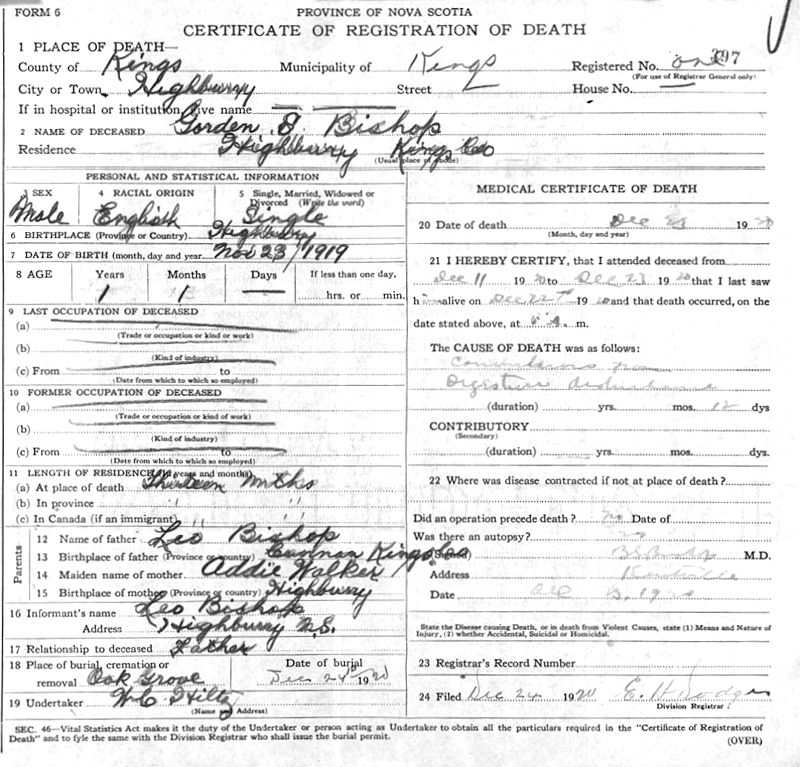 FORM 6
PROVINCE OF NOVA SCOTIA
CERTIFICATE OF REGISTRATION OF DEATH
1 PLACE OF DEATH—
County of Kings Municipality of Kings Registered No. 397
(For use of Registrar General only)
City or Town Highburry Street — House No. —
If in hospital or institution, give name — —
2 NAME OF DECEASED Gorden E. Bishop
Residence Highburry Kings Co
(Usual place of abode)
PERSONAL AND STATISTICAL INFORMATION
3 SEX 4 RACIAL ORIGIN 5 Single, Married, Widowed or
Divorced (Write the word)
Male English Single
6 BIRTHPLACE (Province or Country) Highburry
7 DATE OF BIRTH (month, day and year) Nov 23/1919
8 AGE Years Months Days If less than one day,
1 1 — hrs. or min.
9 LAST OCCUPATION OF DECEASED
(a)
(Trade or occupation or kind or work)
(b)
(Kind of industry)
(c) From to
(Date from which to which so employed)
10 FORMER OCCUPATION OF DECEASED
(a)
(Trade or occupation or kind of work)
(b)
(Kind of industry)
(c) From to
(Date from which to which so employed)
11 LENGTH OF RESIDENCE (in years and months)
(a) At place of death Thirteen Mnths
(b) In province " "
(c) In Canada (if an immigrant) " "
Parents
12 Name of father Leo Bishop
13 Birthplace of father (Province or country) Cannan Kings Co
14 Maiden name of mother Addie Walker
15 Birthplace of mother (Province or country) Highburry
16 Informant's name Leo Bishop
Address Highburry N.S.
17 Relationship to deceased Father
18 Place of burial, cremation or Date of burial
removal Oak Grove Dec 24th 1920
19 Undertaker W.C. Hiltz
(Name and Address)
MEDICAL CERTIFICATE OF DEATH
20 Date of death Dec 23 1920
(Month, day and year)
21 I HEREBY CERTIFY, that I attended deceased from
Dec 11 1920 to Dec 23 1920 that I last saw
him alive on Dec 22 1920 and that death occurred, on the
date stated above, at a. m.
The CAUSE OF DEATH was as follows:
Convulsions from
Digestive disturbance
(duration) yrs. mos. 12 dys
CONTRIBUTORY
(Secondary)
(duration) yrs. mos. dys.
22 Where was disease contracted if not at place of death?
Did an operation precede death? no Date of
Was there an autopsy? no
(Signed) M.D.
Address Kentville
Date Dec 1920
State the Disease causing Death, or in death from Violent Causes, state (1) Means and Nature of
Injury, (2) whether Accidental, Suicidal or Homicidal.
23 Registrar's Record Number
24 Filed Dec 24 1920 E. H. Dodge
Division Registrar
SEC. 46—Vital Statistics Act makes it the duty of the Undertaker or person acting as Undertaker to obtain all the particulars required in the "Certificate of Registration of
Death" and to fyle the same with the Division Registrar who shall issue the burial permit.
(OVER)